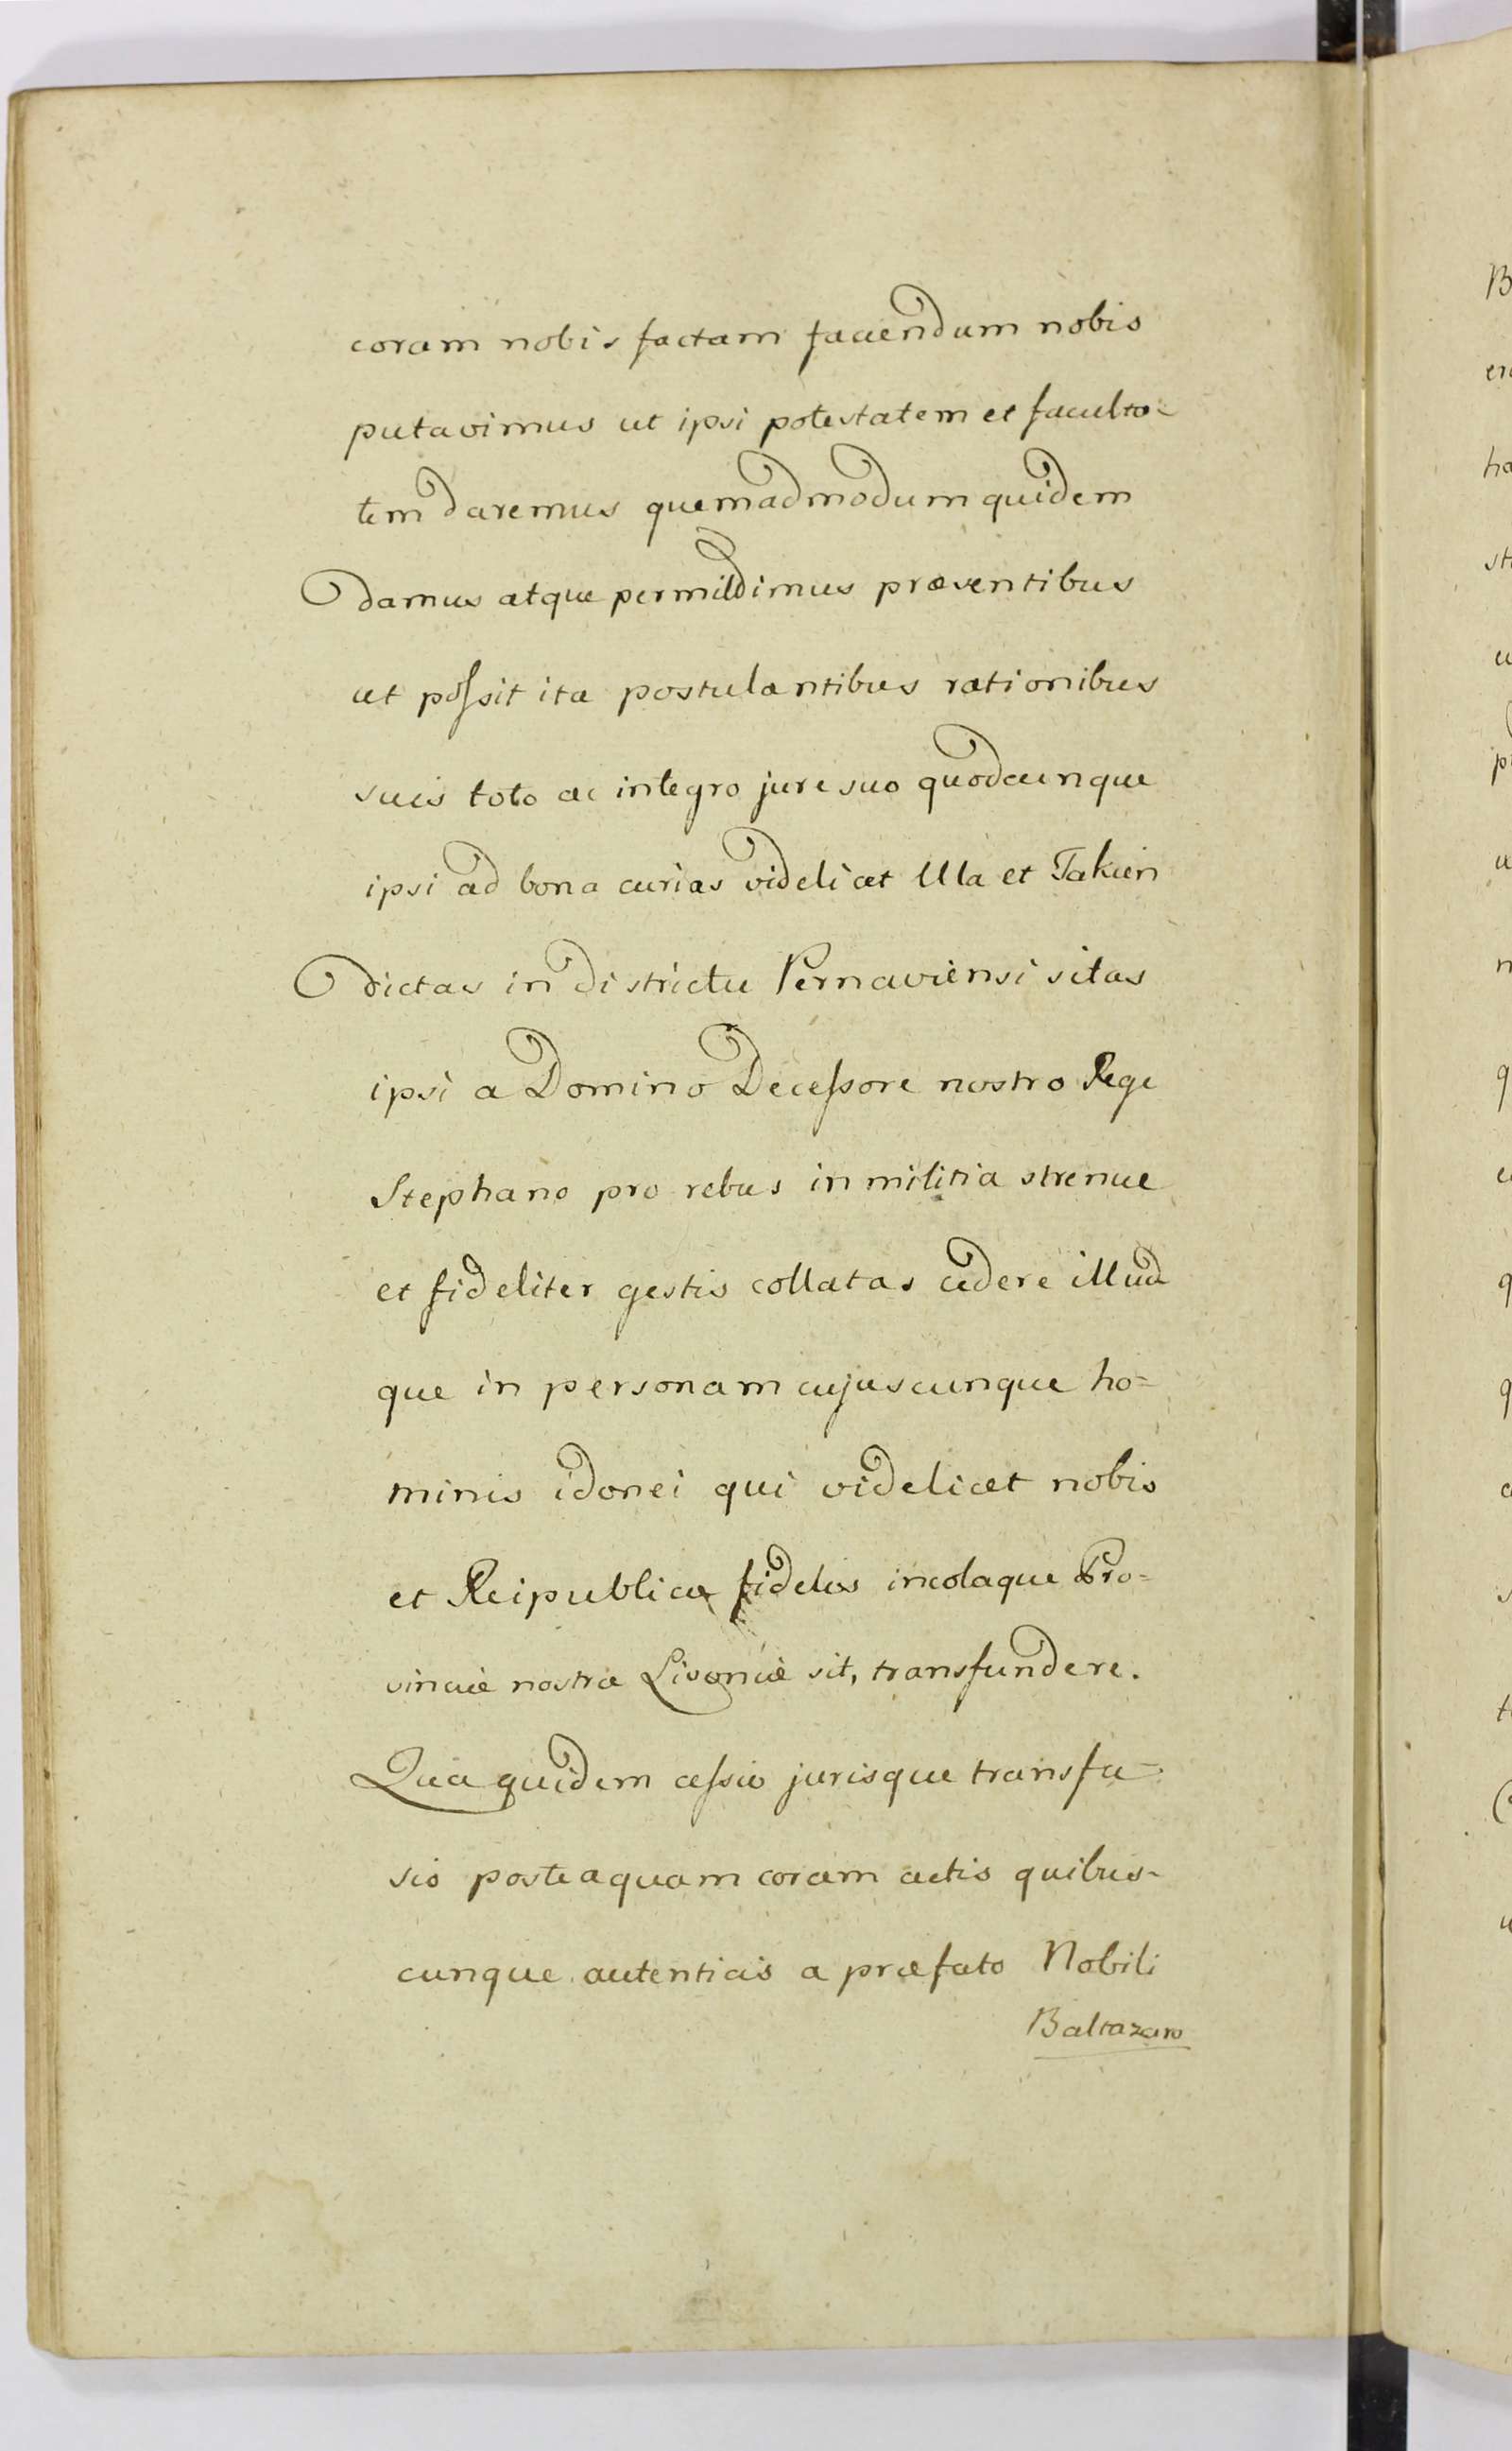 coram nobis factam faciendum nobis
putavimus ut ipsi potestatem et faculta=
tem daremus quemadmodum quidem
damus atque permittimus præsentibus
ut possit ita postulantibus rationibus
suis toto ac integro jure suo quodcunque
ipsi ad bona curias videlicet Ulla et Takien
dictas in districtu Pernaviensi sitas
ipsi a Domino Decessore nostro Rege
Stephano pro rebus in militia strenue
et fideliter gestis collatas cedere illud
que in personam cujuscunque ho=
minis idonei qui videlicet nobis
et Reipublicæ fidelis incolaque Pro=
vinciæ nostræ Livoniæ sit, transfundere.
Quæ quidem cessio jurisque transfu=
sio posteaquam coram actis quibus-
cunque autenticis a præfato Nobili
Baltazaro